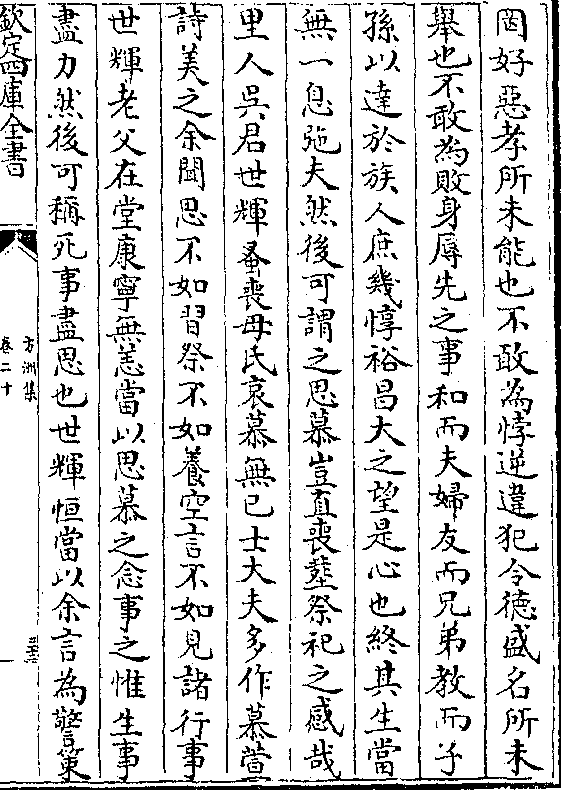 罔好惡孝所未能也不敢為悖逆違犯令徳盛名所未
舉也不敢為敗身辱先之事和而夫婦友而兄弟教而子
孫以達於族人庶幾惇裕昌大之望是心也終其生當
無一息弛夫然後可謂之思慕豈直喪塟祭祀之感哉
里人吳君世輝蚤喪母氏哀慕無已士大夫多作慕萱
詩美之余聞思不如習祭不如養空言不如見諸行事
世輝老父在堂康寧無恙當以思慕之念事之惟生事
盡力然後可稱死事盡思也世輝恒當以余言為警策
欽定四庫全書
方洲集
卷二十